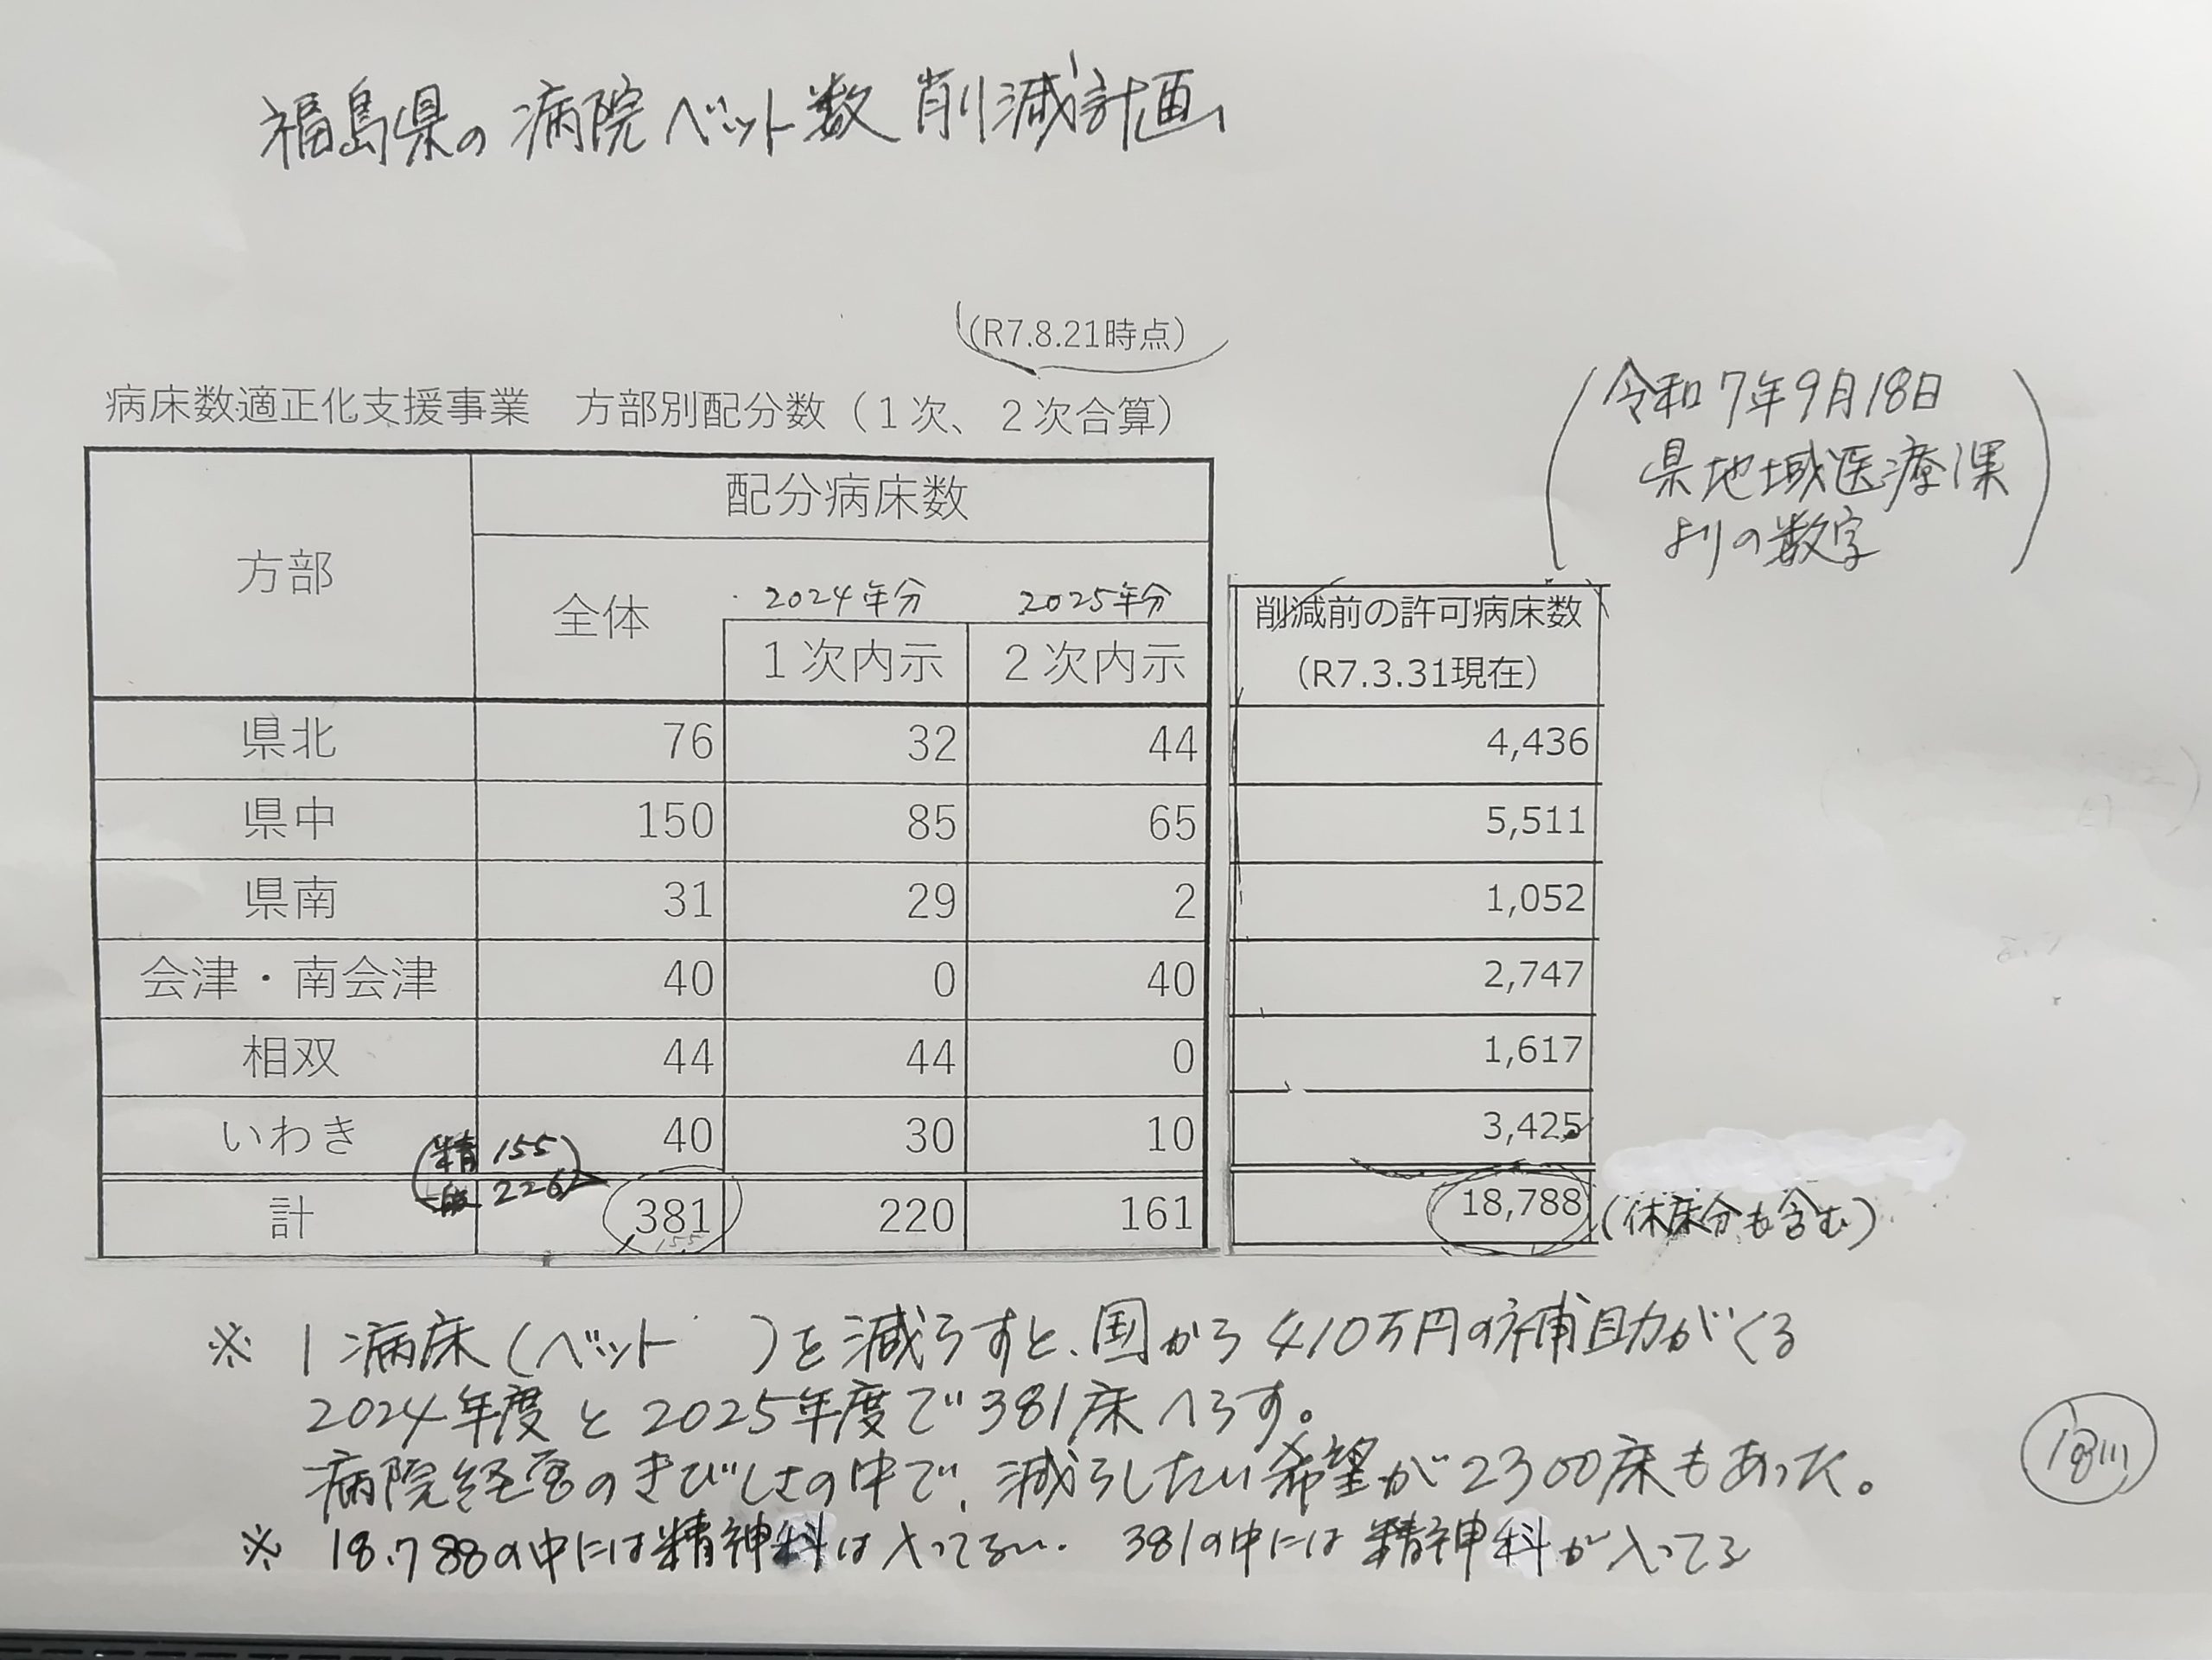 福島県の病院ベット数削減計画
(R7.8.21時点)
病床数適正化支援事業　方部別配分数（１次、２次合算）
(令和7年9月18日
県地域医療課
よりの数字)
方部
配分病床数
全体
2024年分
2025年分
１次内示
２次内示
削減前の許可病床数
(R7.3.31現在)
県北 76 32 44 4,436
県中 150 85 65 5,511
県南 31 29 2 1,052
会津・南会津 40 0 40 2,747
相双 44 44 0 1,617
いわき 40 30 10 3,425
(精 155
一般 226)
計 381 220 161 18,788 (休床分も含む)
※ 1病床(ベット　)を減らすと、国から410万円の補助がくる
2024年度と2025年度で381床へらす。
病院経営のきびしさの中で、減らしたい希望が2300床もあった。
※ 18,788の中には精神科は入ってない. 381の中には精神科が入ってる